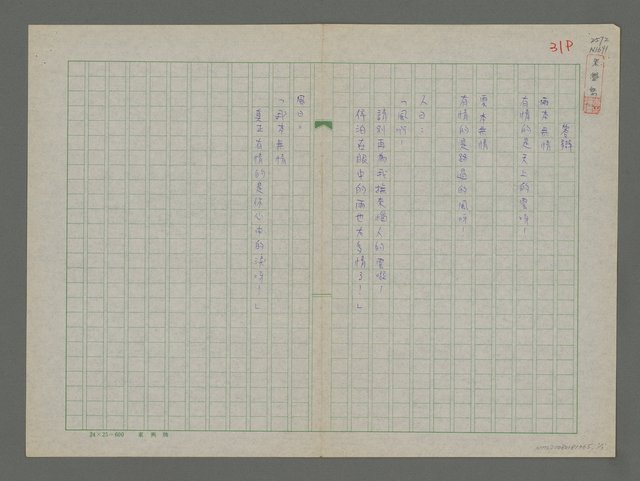 31P
答辯
雨本無情
有情的是天上的雲呀！
雲本無情
有情的是路過的風呀
人曰：
「風呀！
請別再為我擄來惱人的雲啦！
停泊在眼中的雨也太多情了！」
風曰：
「我本無情
真正有情的是你心中的淚呀！」
24×25=600